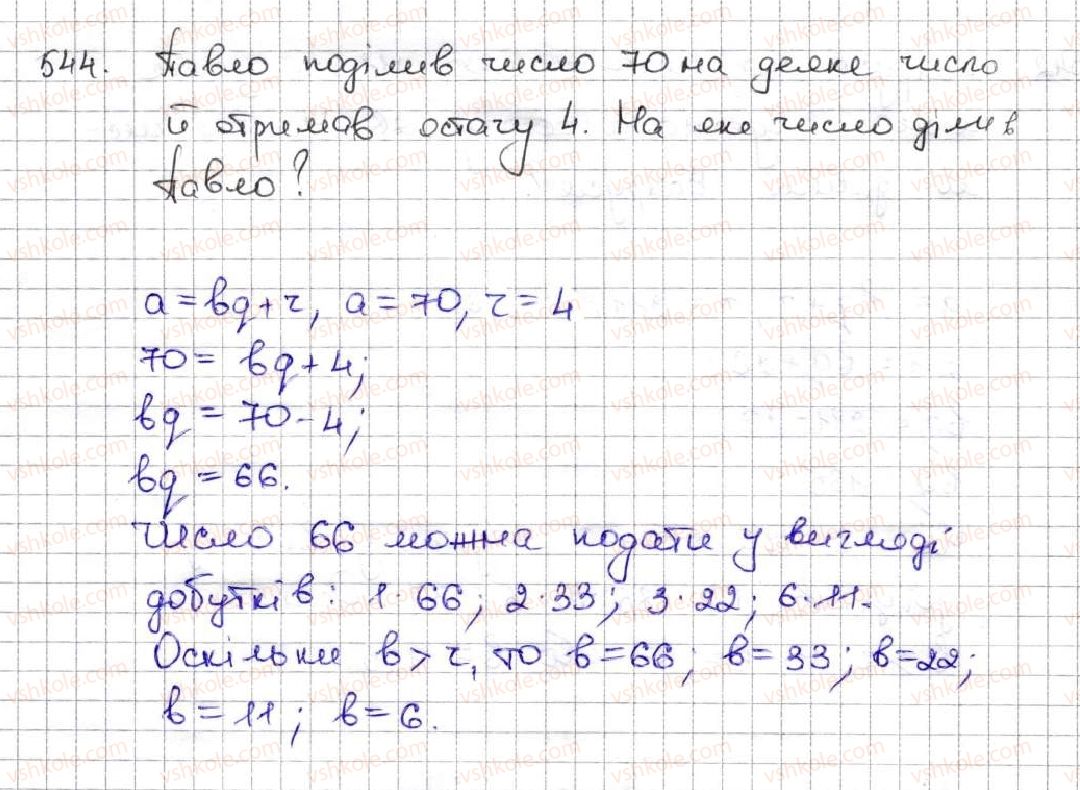 544. Павло поділив число 70 на деяке число
й отримав остачу 4. На яке число ділив
Павло?
a = bq + r, a = 70, r = 4
70 = bq + 4;
bq = 70 - 4;
bq = 66.
Число 66 можна подати у вигляді
добутків: 1·66; 2·33; 3·22; 6·11.
Оскільки b > r, то b = 66; b = 33; b = 22;
b = 11; b = 6.